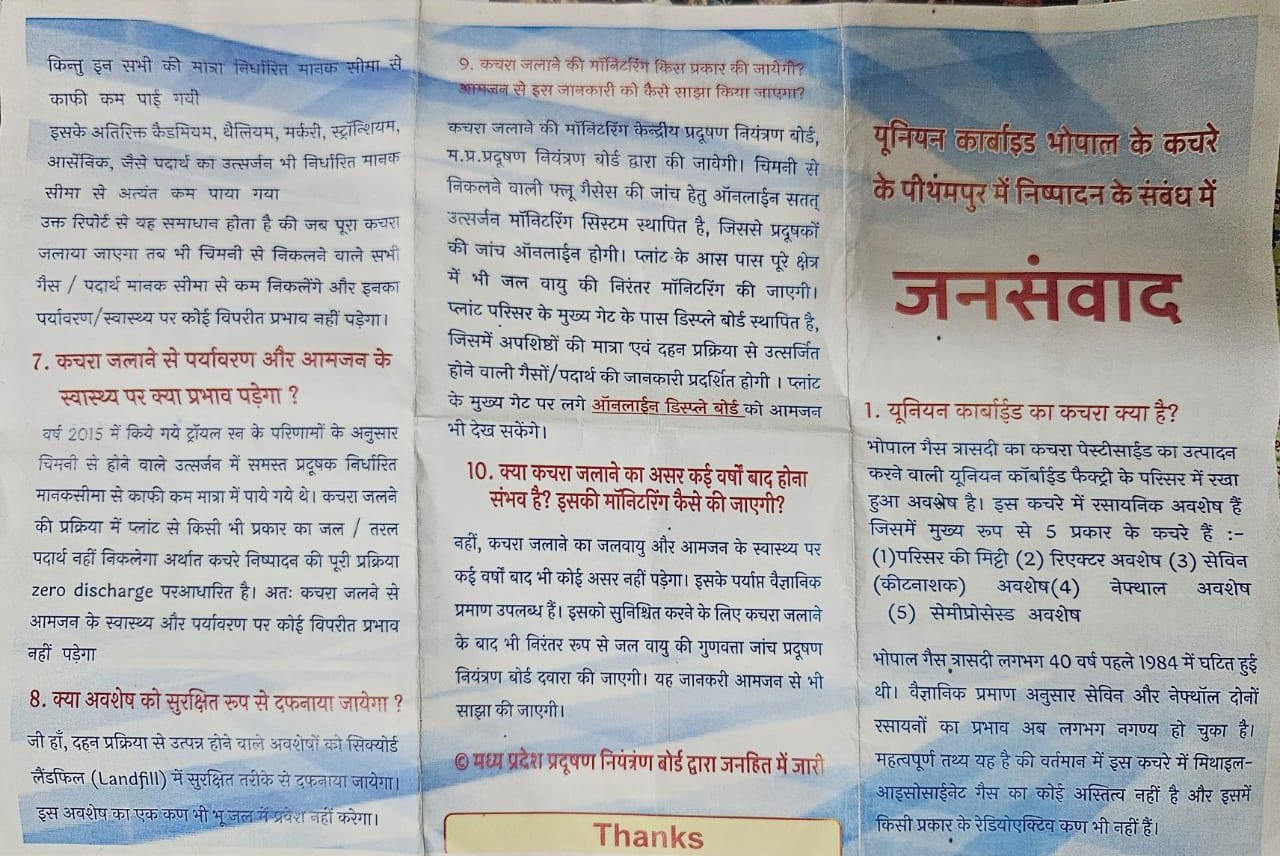 किन्तु इन सभी की मात्रा निर्धारित मानक सीमा से
काफी कम पाई गयी
इसके अतिरिक्त कैडमियम, थैलियम, मर्करी, स्ट्रॉन्शियम,
आर्सेनिक, जैसे पदार्थ का उत्सर्जन भी निर्धारित मानक
सीमा से अत्यंत कम पाया गया
उक्त रिपोर्ट से यह समाधान होता है की जब पूरा कचरा
जलाया जाएगा तब भी चिमनी से निकलने वाले सभी
गैस / पदार्थ मानक सीमा से कम निकलेंगे और इनका
पर्यावरण/स्वास्थ्य पर कोई विपरीत प्रभाव नहीं पड़ेगा।
7. कचरा जलाने से पर्यावरण और आमजन के
स्वास्थ्य पर क्या प्रभाव पड़ेगा ?
वर्ष 2015 में किये गये ट्रॉयल रन के परिणामों के अनुसार
चिमनी से होने वाले उत्सर्जन में समस्त प्रदूषक निर्धारित
मानकसीमा से काफी कम मात्रा में पाये गये थे। कचरा जलने
की प्रक्रिया में प्लांट से किसी भी प्रकार का जल / तरल
पदार्थ नहीं निकलेगा अर्थात कचरे निष्पादन की पूरी प्रक्रिया
zero discharge परआधारित है। अतः कचरा जलने से
आमजन के स्वास्थ्य और पर्यावरण पर कोई विपरीत प्रभाव
नहीं पड़ेगा
8. क्या अवशेष को सुरक्षित रूप से दफनाया जायेगा ?
जी हाँ, दहन प्रक्रिया से उत्पन्न होने वाले अवशेषों को सिक्योर्ड
लैंडफिल (Landfill) में सुरक्षित तरीके से दफनाया जायेगा।
इस अवशेष का एक कण भी भू जल में प्रवेश नहीं करेगा।
9. कचरा जलाने की मॉनिटरिंग किस प्रकार की जायेगी?
आमजन से इस जानकारी को कैसे साझा किया जाएगा?
कचरा जलाने की मॉनिटरिंग केन्द्रीय प्रदूषण नियंत्रण बोर्ड,
म.प्र.प्रदूषण नियंत्रण बोर्ड द्वारा की जावेगी। चिमनी से
निकलने वाली फ्लू गैसेस की जांच हेतु ऑनलाईन सतत्
उत्सर्जन मॉनिटरिंग सिस्टम स्थापित है, जिससे प्रदूषकों
की जांच ऑनलाईन होगी। प्लांट के आस पास पूरे क्षेत्र
में भी जल वायु की निरंतर मॉनिटरिंग की जाएगी।
प्लांट परिसर के मुख्य गेट के पास डिस्प्ले बोर्ड स्थापित है,
जिसमें अपशिष्टों की मात्रा एवं दहन प्रक्रिया से उत्सर्जित
होने वाली गैसों/पदार्थ की जानकारी प्रदर्शित होगी । प्लांट
के मुख्य गेट पर लगे ऑनलाईन डिस्प्ले बोर्ड को आमजन
भी देख सकेंगे।
10. क्या कचरा जलाने का असर कई वर्षों बाद होना
संभव है? इसकी मॉनिटरिंग कैसे की जाएगी?
नहीं, कचरा जलाने का जलवायु और आमजन के स्वास्थ्य पर
कई वर्षों बाद भी कोई असर नहीं पड़ेगा। इसके पर्याप्त वैज्ञानिक
प्रमाण उपलब्ध हैं। इसको सुनिश्चित करने के लिए कचरा जलाने
के बाद भी निरंतर रूप से जल वायु की गुणवत्ता जांच प्रदूषण
नियंत्रण बोर्ड दवारा की जाएगी। यह जानकरी आमजन से भी
साझा की जाएगी।
© मध्य प्रदेश प्रदूषण नियंत्रंण बोर्ड द्वारा जनहित में जारी
Thanks
यूनियन कार्बाइड भोपाल के कचरे
के पीथंमपुर में निष्पादन के संबंध में
जनसंवाद
1. यूनियन कार्बाईड का कचरा क्या है?
भोपाल गैस त्रासदी का कचरा पेस्टीसाईड का उत्पादन
करने वाली यूनियन कॉर्बाईड फैक्ट्री के परिसर में रखा
हुआ अवशेष है। इस कचरे में रसायनिक अवशेष हैं
जिसमें मुख्य रूप से 5 प्रकार के कचरे हैं :-
(1)परिसर की मिट्टी (2) रिएक्टर अवशेष (3) सेविन
(कीटनाशक) अवशेष(4) नेफ्थाल अवशेष
(5) सेमीप्रोसेस्ड अवशेष
भोपाल गैस त्रासदी लगभग 40 वर्ष पहले 1984 में घटित हुई
थी। वैज्ञानिक प्रमाण अनुसार सेविन और नेफ्थॉल दोनों
रसायनों का प्रभाव अब लगभग नगण्य हो चुका है।
महत्वपूर्ण तथ्य यह है की वर्तमान में इस कचरे में मिथाइल-
आइसोसाईनेट गैस का कोई अस्तित्व नहीं है और इसमें
किसी प्रकार के रेडियोएक्टिव कण भी नहीं हैं।